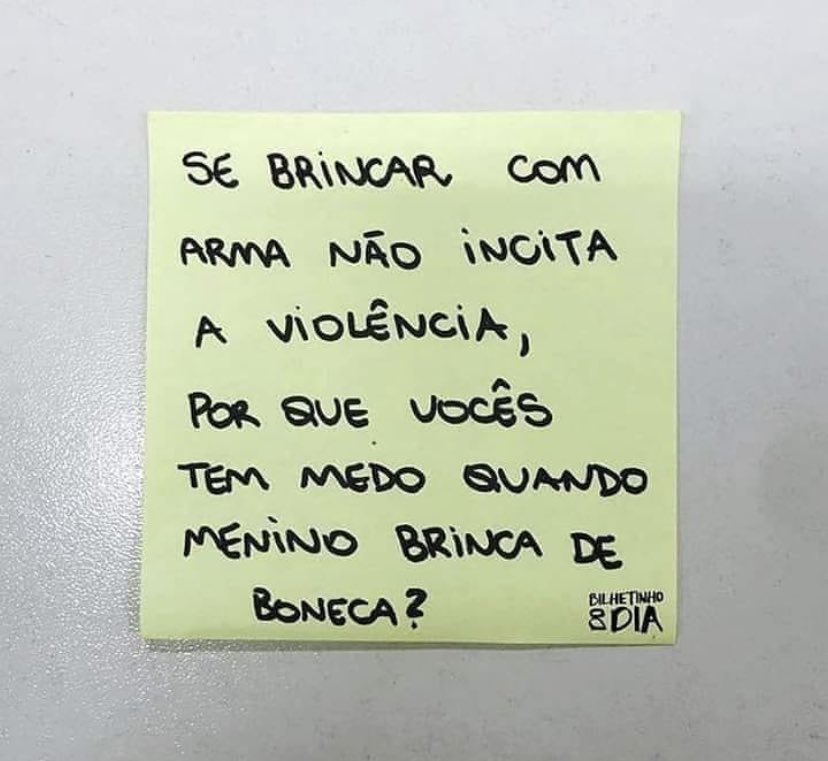 SE BRINCAR COM
ARMA NÃO INCITA
A VIOLÊNCIA,
POR QUE VOCÊS
TEM MEDO QUANDO
MENINO BRINCA DE
BONECA?
BILHETINHO
DO DIA